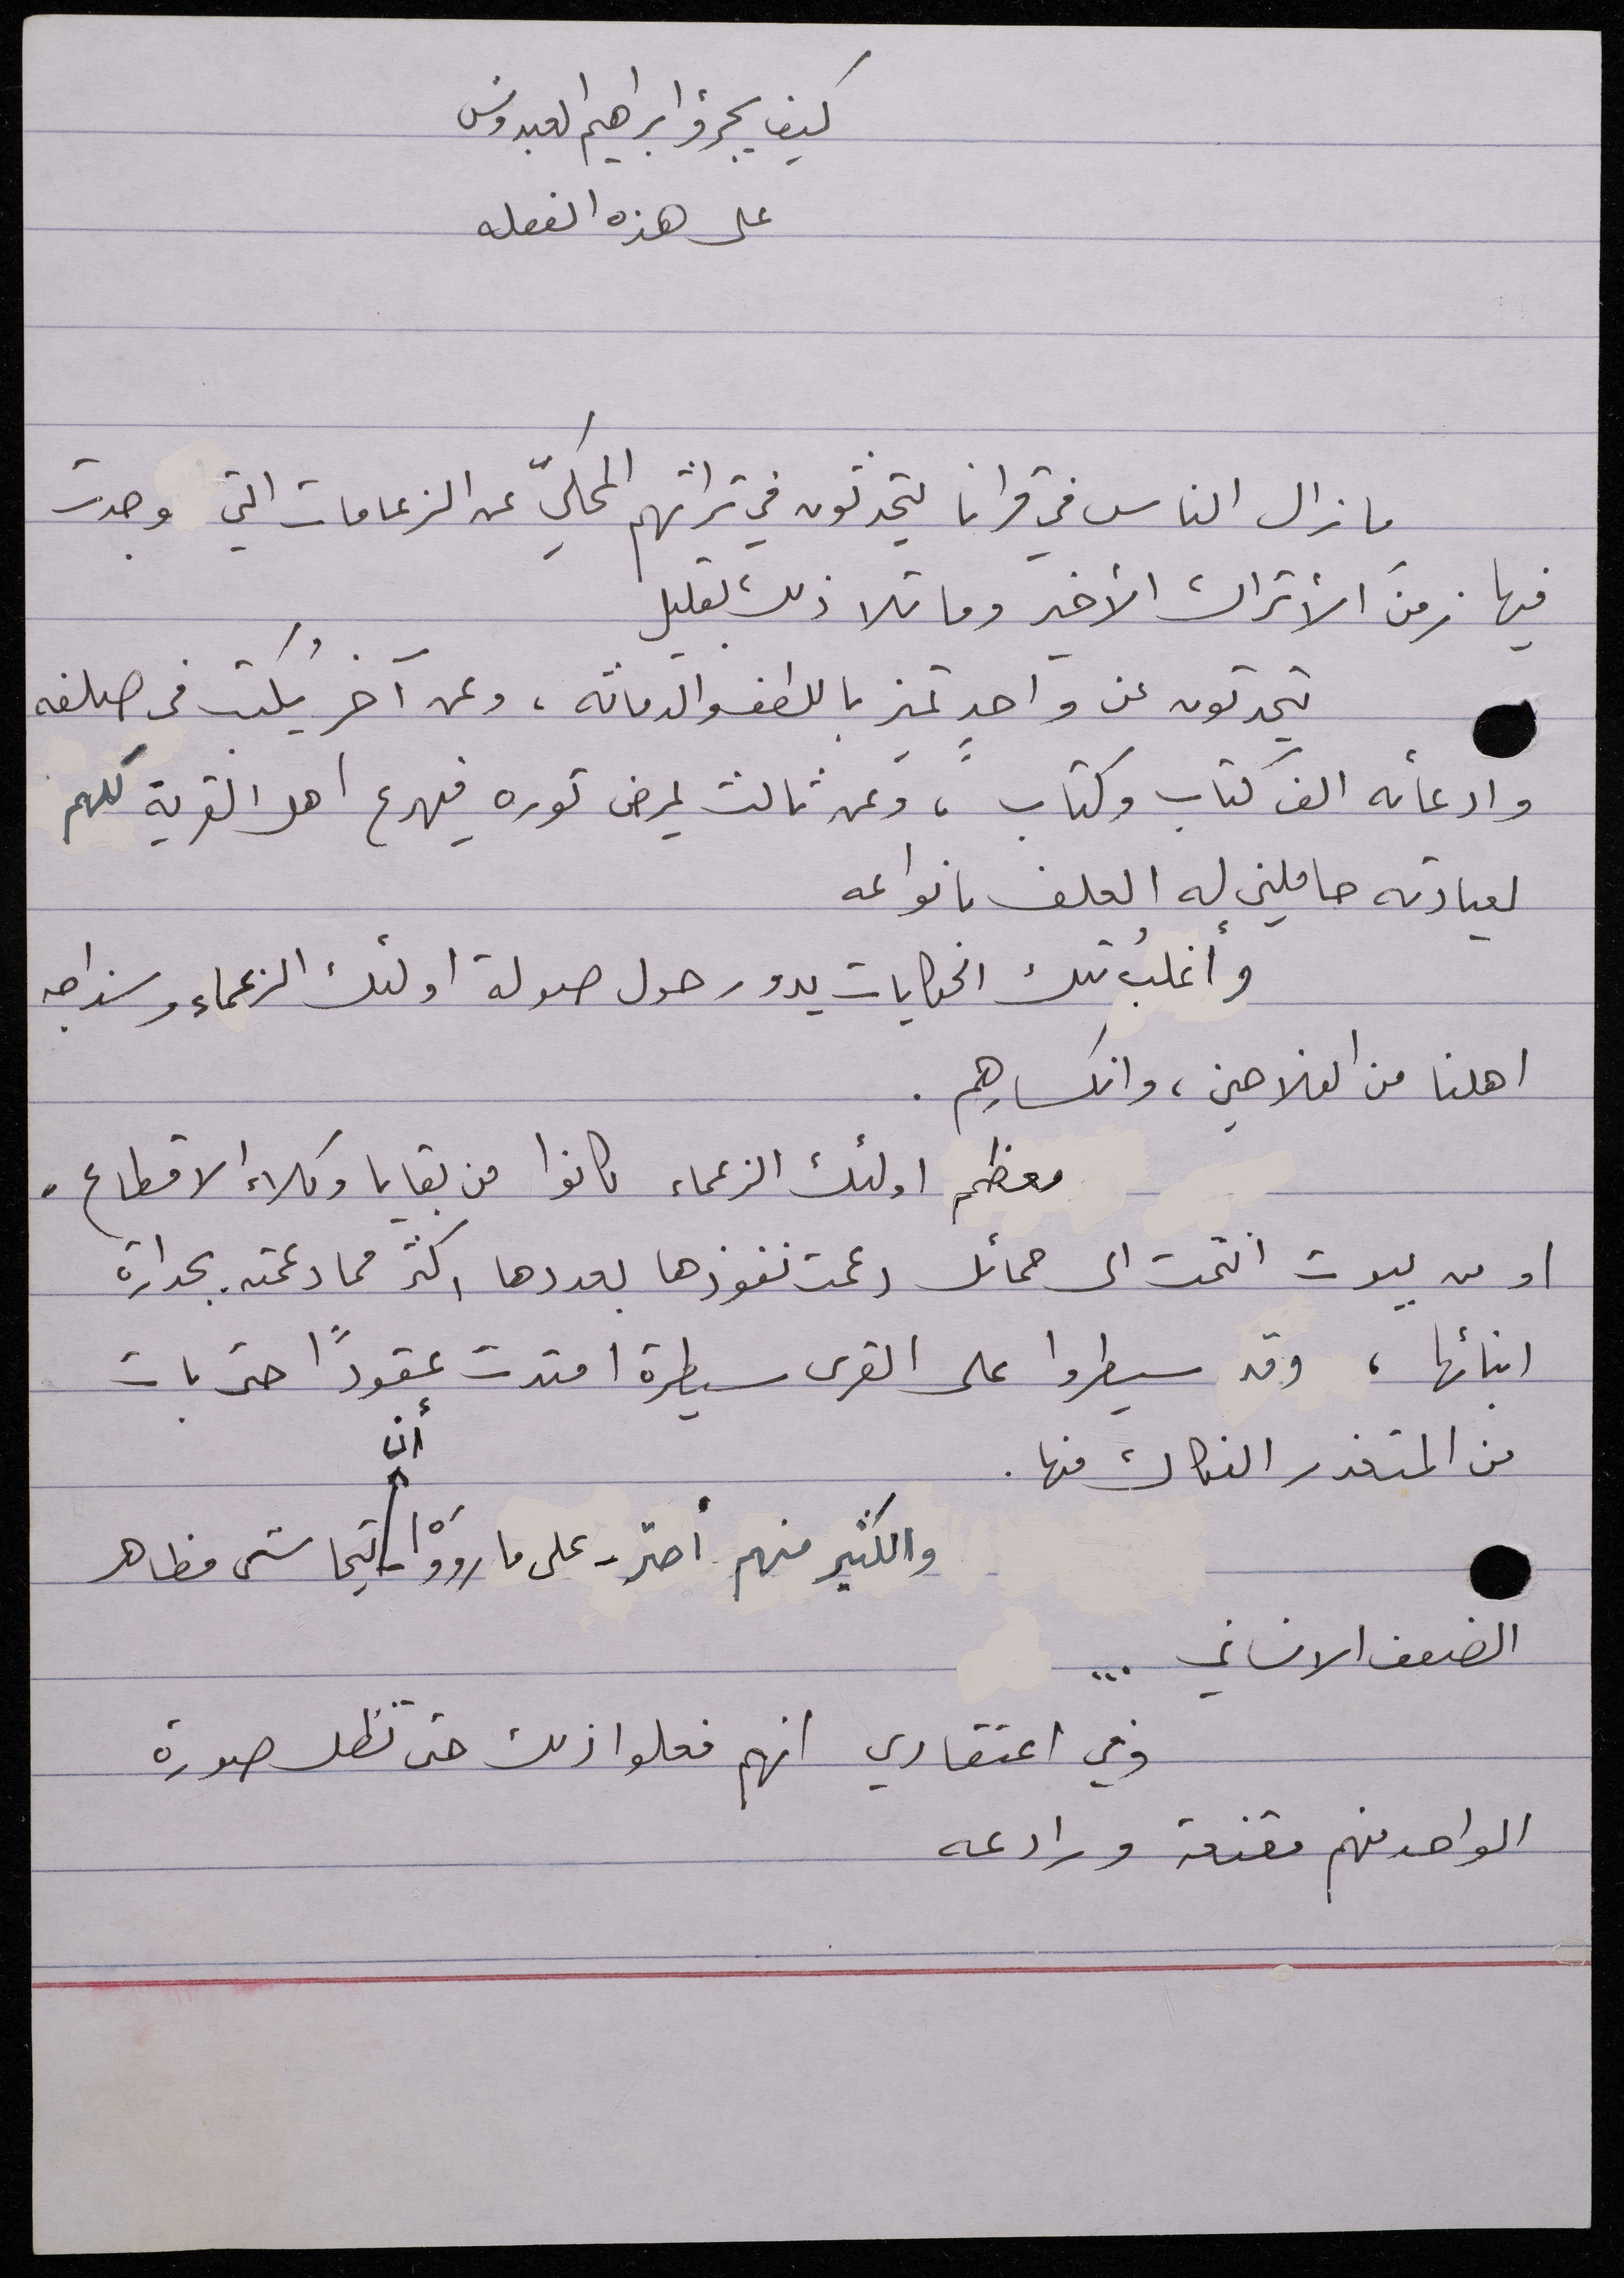 كيف يجرؤ ابراهيم العبدوش
على هذه الفعله
ما زال الناس في قرانا يتحدثون في تراثهم المحكيّ عن الزعامات التي وجدت
فيها زمنَ الأتراك الأخير وما تلا ذلك بقليل
يتحدثون عن واحدٍ تميز باللطف والدماثه ، وعن آخر يُكتب في صلفه
وادعائه الف كتاب وكتاب ، وعن ثالث يمرض ثوره فيهرع اهل القرية كلهم
لعيادته حاملين له العلف بانواعه
وأغلبُ تلك الحكايات يدور حول صولة اولئك الزعماء وسذاجه
اهلنا من الفلاحين ، وانكسارهم .
معظم اولئك الزعماء كانوا من بقايا وكلاء الاقطاع .
او من بيوت انتمت الى حمائل دعمت نفوذها بعددها اكثر مما دعمته بجدارة
ابنائها ، وقد سيطروا على القرى سيطرة امتدت عقودًا حتى بات
من المتعذر الفكاك منها .
والكثير منهم أصرّ - على ما رَوَوْا - أن يتحاشى مظاهر
الضعف الانساني ...
وفي اعتقادي انهم فعلوا ذلك حتى تظل صورة
الواحد منهم مقنعة ورادعه